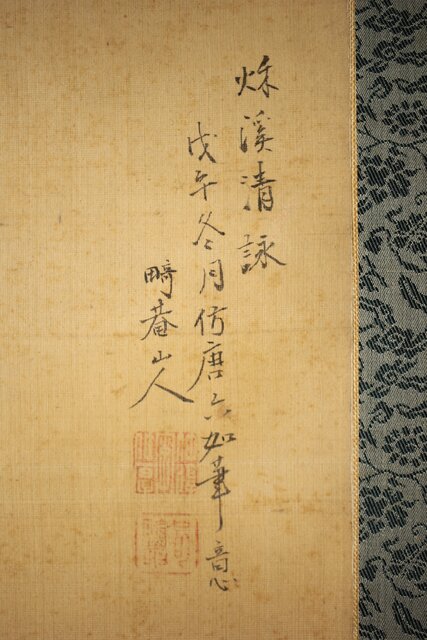 秌溪清詠
戊午冬月仿唐六如筆意
畸菴山人